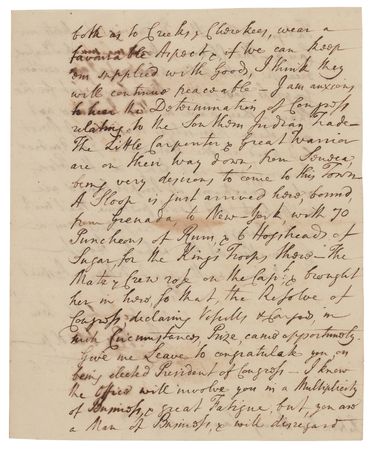 both as to Creeks & Cherokees, wear a
favourable Aspect, & if we can keep
em supplied with Goods, I think they
will continue peaceable – I am anxious
to hear the Determination of Congress
relating to the Southern Indian Trade –
The Little Carpenter & Great Warrior
are on their Way down, from Seneca,
being very desirous to come to this Town
A Sloop is just arrived here, bound
from Grenada to New-York with 70
Puncheons of Rum, & 6 Hogsheads of
Sugar for the King's Troops there – The
Mate & Crew rose on the Capt: & brought
her in here, so that, the Resolve of
Congress declaring Vessells & Cargoes, in
such Circumstances, Prize, came opportunely.
Give me Leave to congratulate you, on
being elected President of Congress – I know
the Office will involve you in a Multiplicity
of Business, & great Fatigue, but, you are
a Man of Business, & will disregard